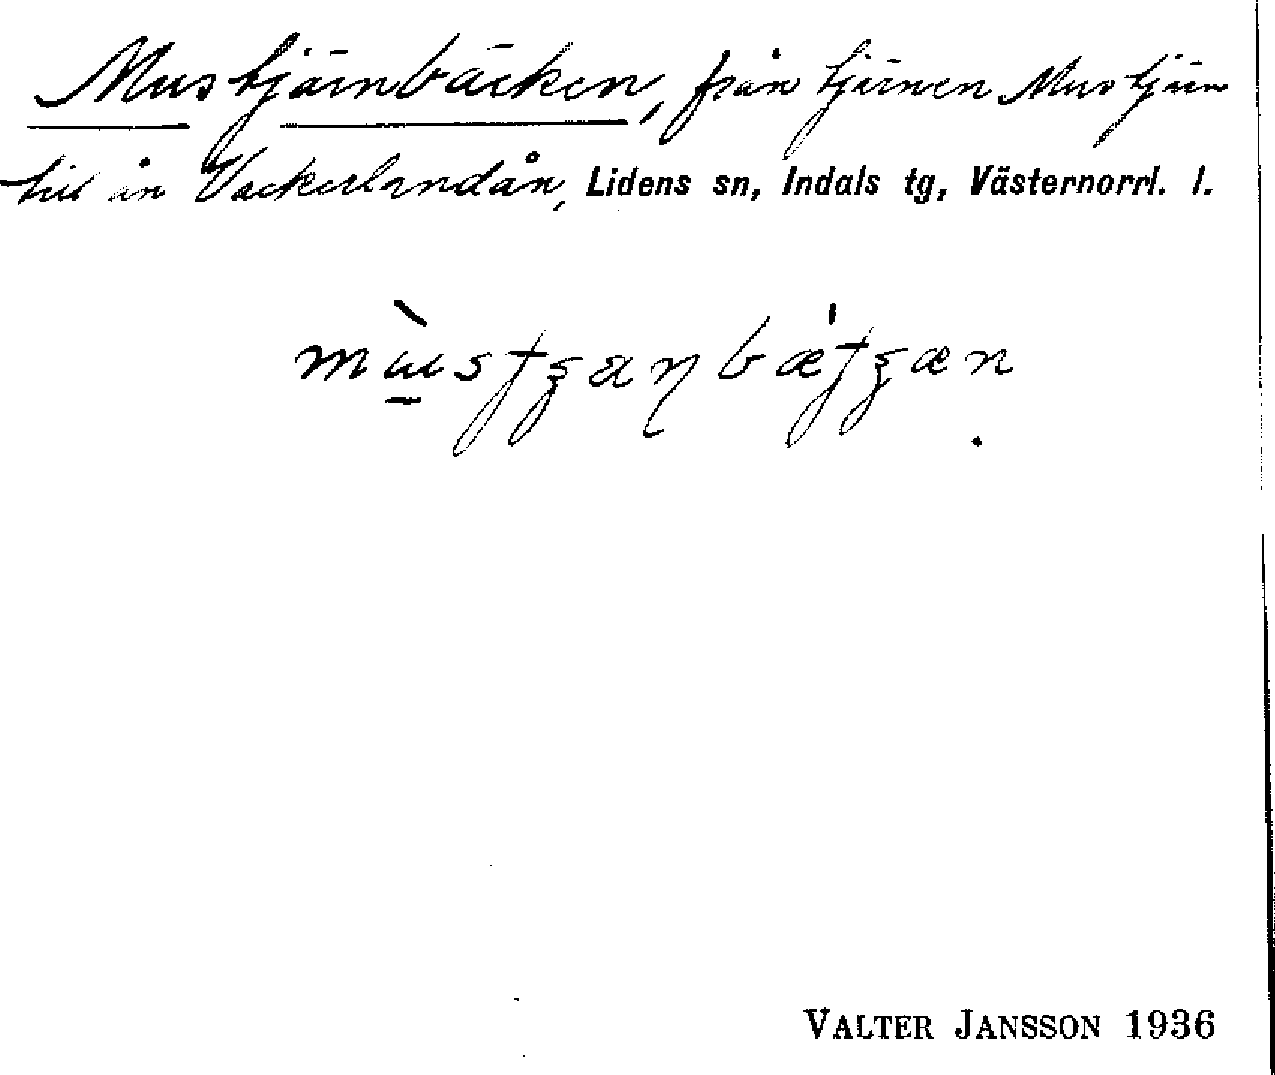 Mustjärnbäcken, från tjärnen Mustjärn
till ån Vackerlandån, Lidens sn, Indals tg, Västernorrl. l.
VALTER JANSSON 1936